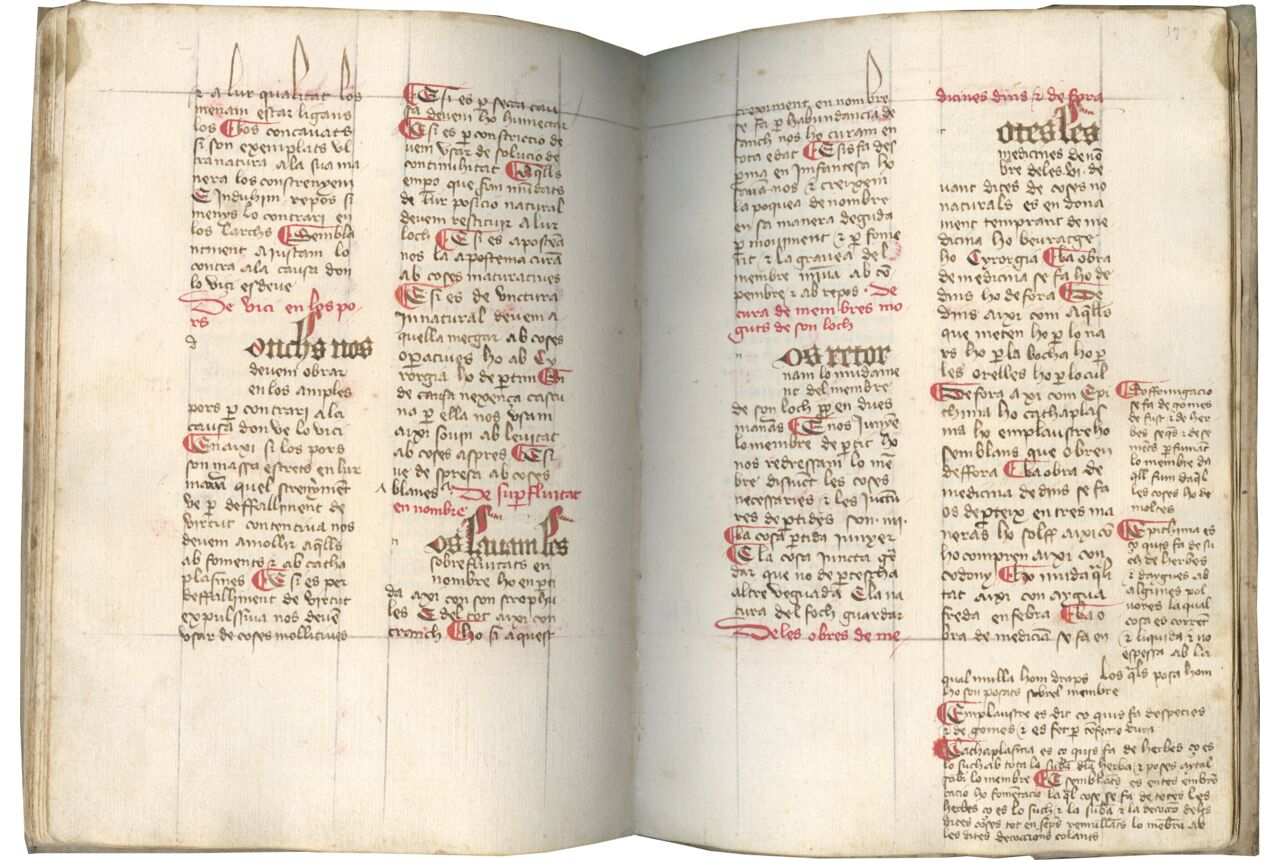 z a lur qualitat los
menam estar ligans
los Los concauats
si son exemplats vl
tranatura ala sua ma
nera los constrenyem
E induhim repos si
menys lo contrari en
los larchs Sembla
ntment aiustam lo
contra ala causa don
lo vici esdeue
De vici en los po
rs
d onchs nos
deuem obrar
en los amples
pors p contrari ala
causa don ve lo vici
Enaxi si los pors
son massa estrets en lur
quel strenyiment
ve p deffalliment de
virtut contentiua nos
deuem amollir aqlls
ab foments z ab catha
plasmes E si es per
deffalliment de virtut
expulsiua nos deue
vsar de coses mollitiues
E si es p secca cau
sa deuem ho humectar
E si es p constrictio de
uem vsar de solucio de
continuhitat Aqlls
empo que son mudats
de lur posicio natural
deuem restituir a lur
loch E si es apostea
nos la apostema cura
ab coses maturatiues
E si es de vnctura
innatural deuem a
quella metgar ab coses
opatiues ho ab Cy
rorgia ho de ptim E si
de causa nexença cascu
na p ella nos vsam
axi souin ab leuitat
ab coses aspres E si
ue de spresa ab coses
blanes De supfluitat
en nombre
n os lauam les
sobrefluitats en
nombre ho en pti
da axi con son scrophu
les E del tot axi con
cranch Eho si aquest
creximent en nombre
se fa p habundancia de
sanch nos ho curam en
tota edat E si sa des
pma en infantesa ho
z creixem
la poquea de nombre
en sa manera deguda
p mouiment z p fome
tit z la grauea del
membre minua ab co
pembre z ab repos De
cura de membres mo
guts de son loch
n os retor
nam lo mudame
nt del membre
de son loch p en dues
manas E nos iunye
lo membre de ptit ho
nos redressam lo me
bre distuent les coses
necessaries z les iuctu
res de ptides son iii
La cosa ptida iunyer
E la cosa iuncta gr
dar que no de ptescha
altre veguada E la na
tura del loch guardar
De les obres de me
dicines dins z de fora
otes les
medicines deue
bre deles vi de
uant dites de coses no
naturals es en dona
ment temprant de me
dicina ho beuratge
ho Cyrorgia E la obra
de medicina se fa ho de
dins ho de fora De
dins axi com aqlls
que meten ho p lo na
rs ho p la bocha ho p
les orelles ho p lo cul
De fora axi com Epi
thima ho cathaplas
ma ho emplaustre ho
semblans que obren
deffora E la obra de
medicina de dins se fa
os depteix en tres ma
neras ho solff axi co
ho compren axi con
codony Eho muda qli
tat axi con aygua
freda en febra E la o
bra de medicia se fa en
Eoffomigacio
se fa de gomes
de fust z de her
bes seqs z de se
mets p fumat
lo membre da
qll fum daqll
les coses ho de
moltes
Epithima es
ço quis fa de su
ch de herbes
z daygues ab
algunes pol
uores la qual
cosa es corret
z liquida z no
espessa ab la
qual mulla hom draps Los qls posa hom
ho son posats sobrel membre
Emplaustre es dit ço quis fa despecies
z de gomes z es fet p confectio dura
Cathaplasma es ço quis fa de herbes ço es
lo such ab tota la suba diq herba z poses axi tal
sobr lo membre E semblats es entes embro
cacio ho fomentacio la ql cose se fa de totes les
herbes ço es lo such z la suba z la decoctio deles
dites coses tot en semps remullats lo mebra ab
les dites decoccions colants